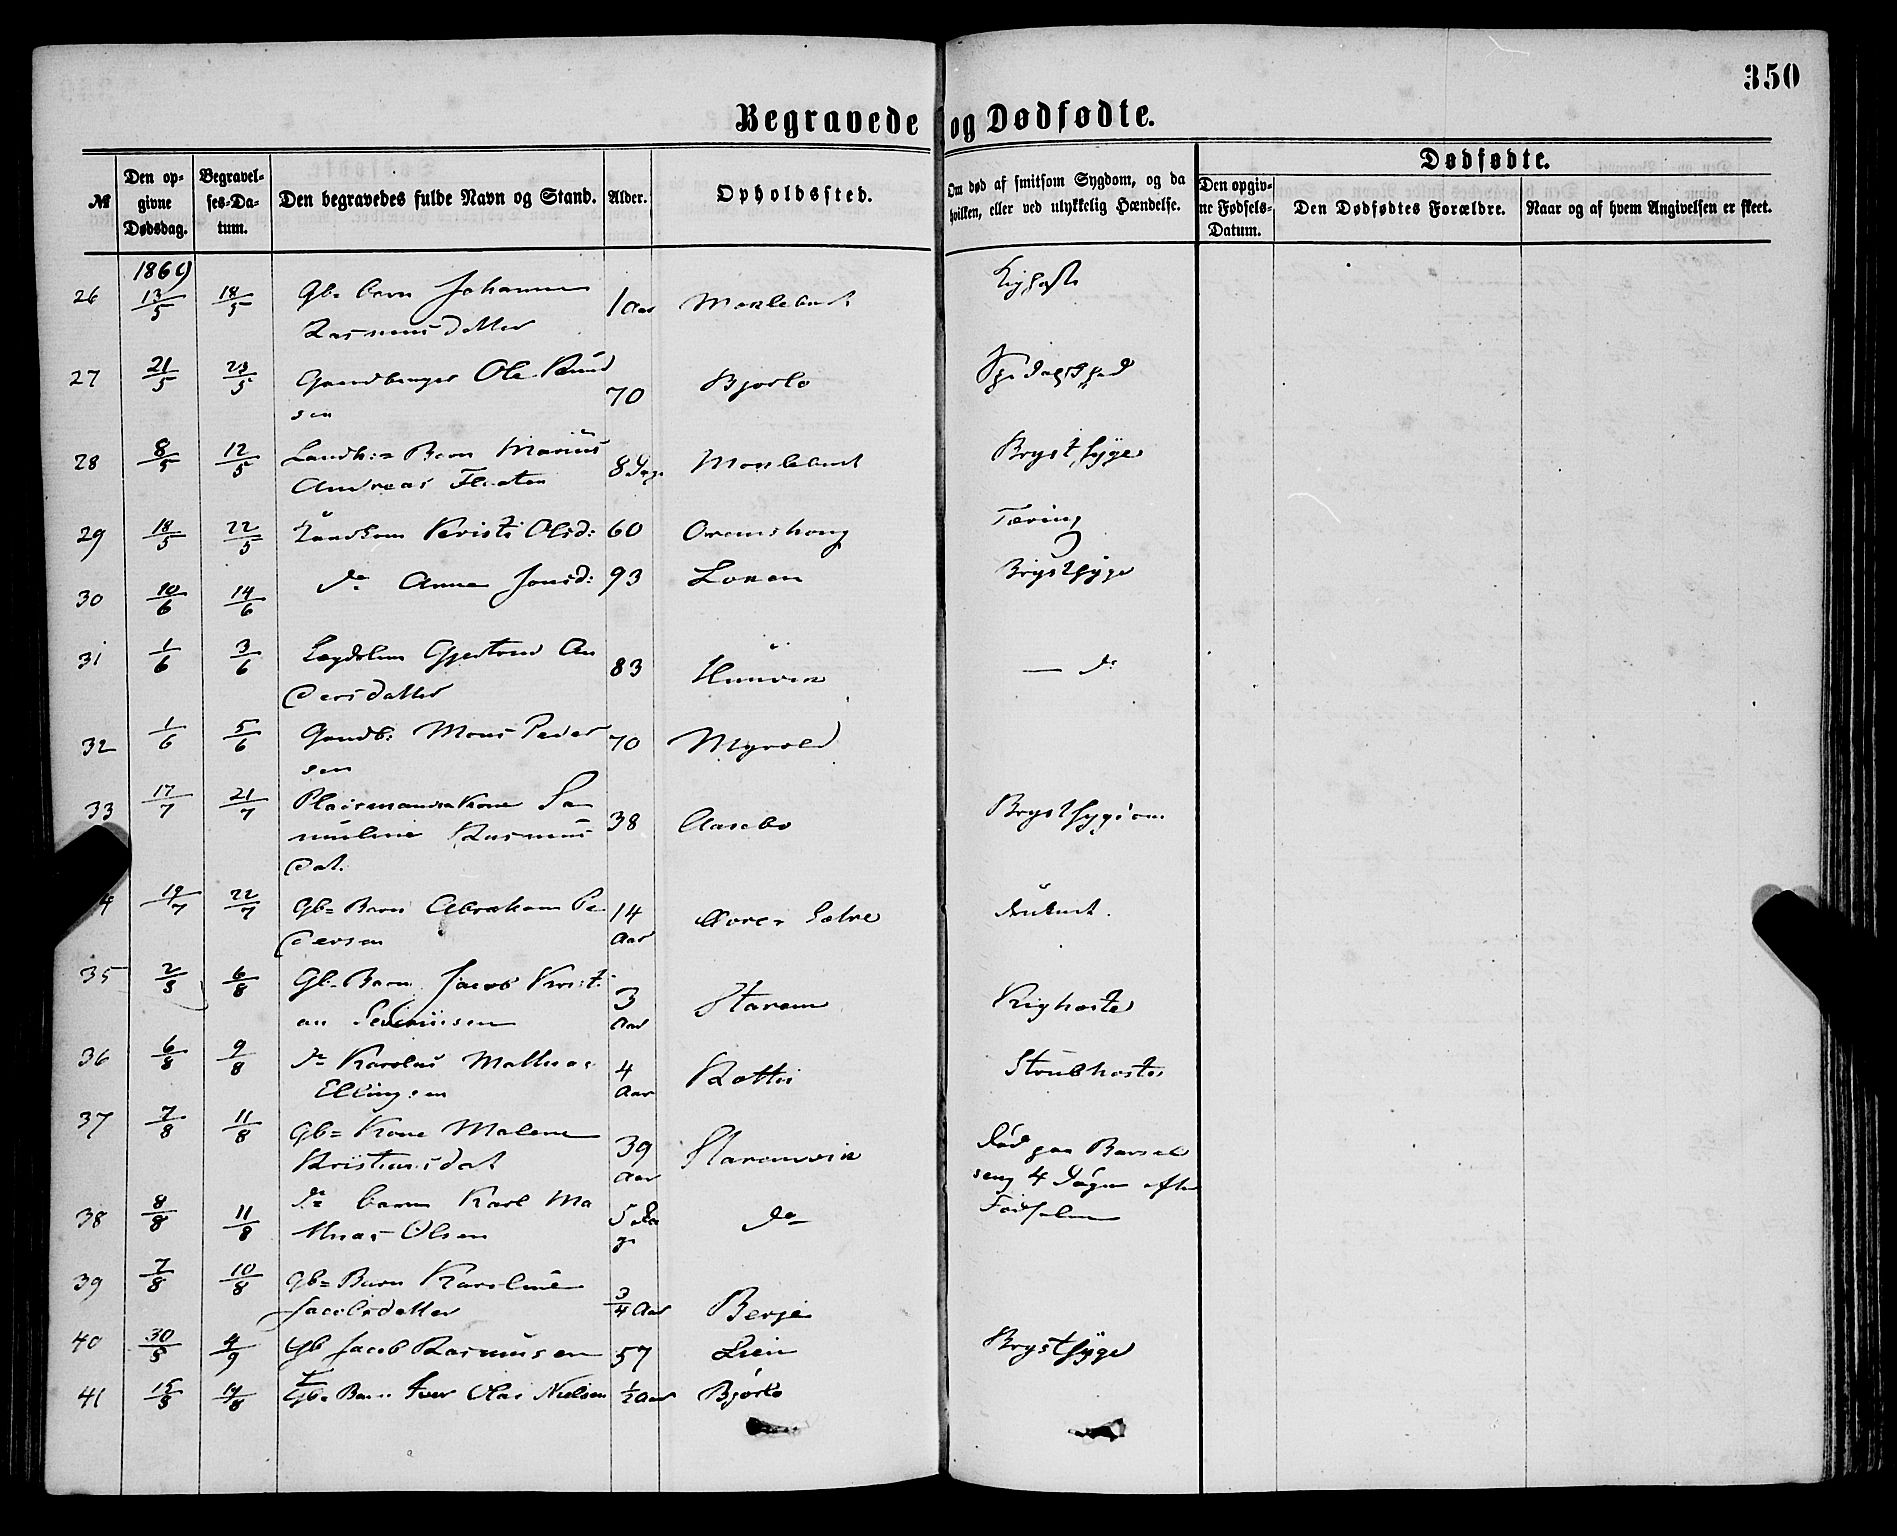 350
Begravede og Dødfødte.
№ Den opgivne Dødsdag. Begravelses-Datum. Den begravedes fulde Navn og Stand. Alder. Opholdssted. Om død af smitsom Sygdom, og da hvilken, eller ved ulykkelig Hændelse. Dødfødte. Den opgivne Fødsels-Datum. Den Dødfødtes Forældre. Naar og af hvem Angivelsen er skeet.
1869
26 13/5 18/5 Gb= barn Johanne 1 Aar
Rasmusdatter
27 21/5 23/5 Ole Knud 70 Bjørlo
sen
28 8/5 12/5 Barn Marius 8 Dage Brystsyge
Andreas Fløtten
29 18/5 22/5 Kristi Olsd: 60 Tæring
30 10/6 14/6 do Anne Jonsd: 93 Brystsyge
31 1/6 3/6 Gjertrud An 83 — do
dersdatter
32 1/6 5/6 Gaardb: Mons Peder 70 Myrold
sen
33 17/7 21/7 Pladsmandskone Sa 38 Aasebø Brystsygdom
muline Rasmus
dat.
4 19/7 22/7 Gb= Barn Abraham Pe 14 Aar
dersen
35 2/8 6/8 Gb= Barn Jacob Kristi 3 Aar Staram Kighoste
an Severinsen
36 6/8 9/8 do Karolus Mathias 4 Aar Strubhoste
Ellingsen
37 7/8 11/8 Gb= Kone Malene 39 Aar Staramvik Død paa Barsel
Kristiansdat seng 4 Dage efter
38 8/8 11/8 do barn Karl Ma 5 Da ge do Fødselen
thias Olsen
39 7/8 10/8 Gb= Barn Karoline 3/4 Aar Berge
Jacobsdatter
40 30/8 4/9 Gb Jacob Rasmussen 57 Lien Brystsyge
41 15/8 19/8 Gb= Barn Iver Olai Nielsen 1/2 Aar Bjørlo